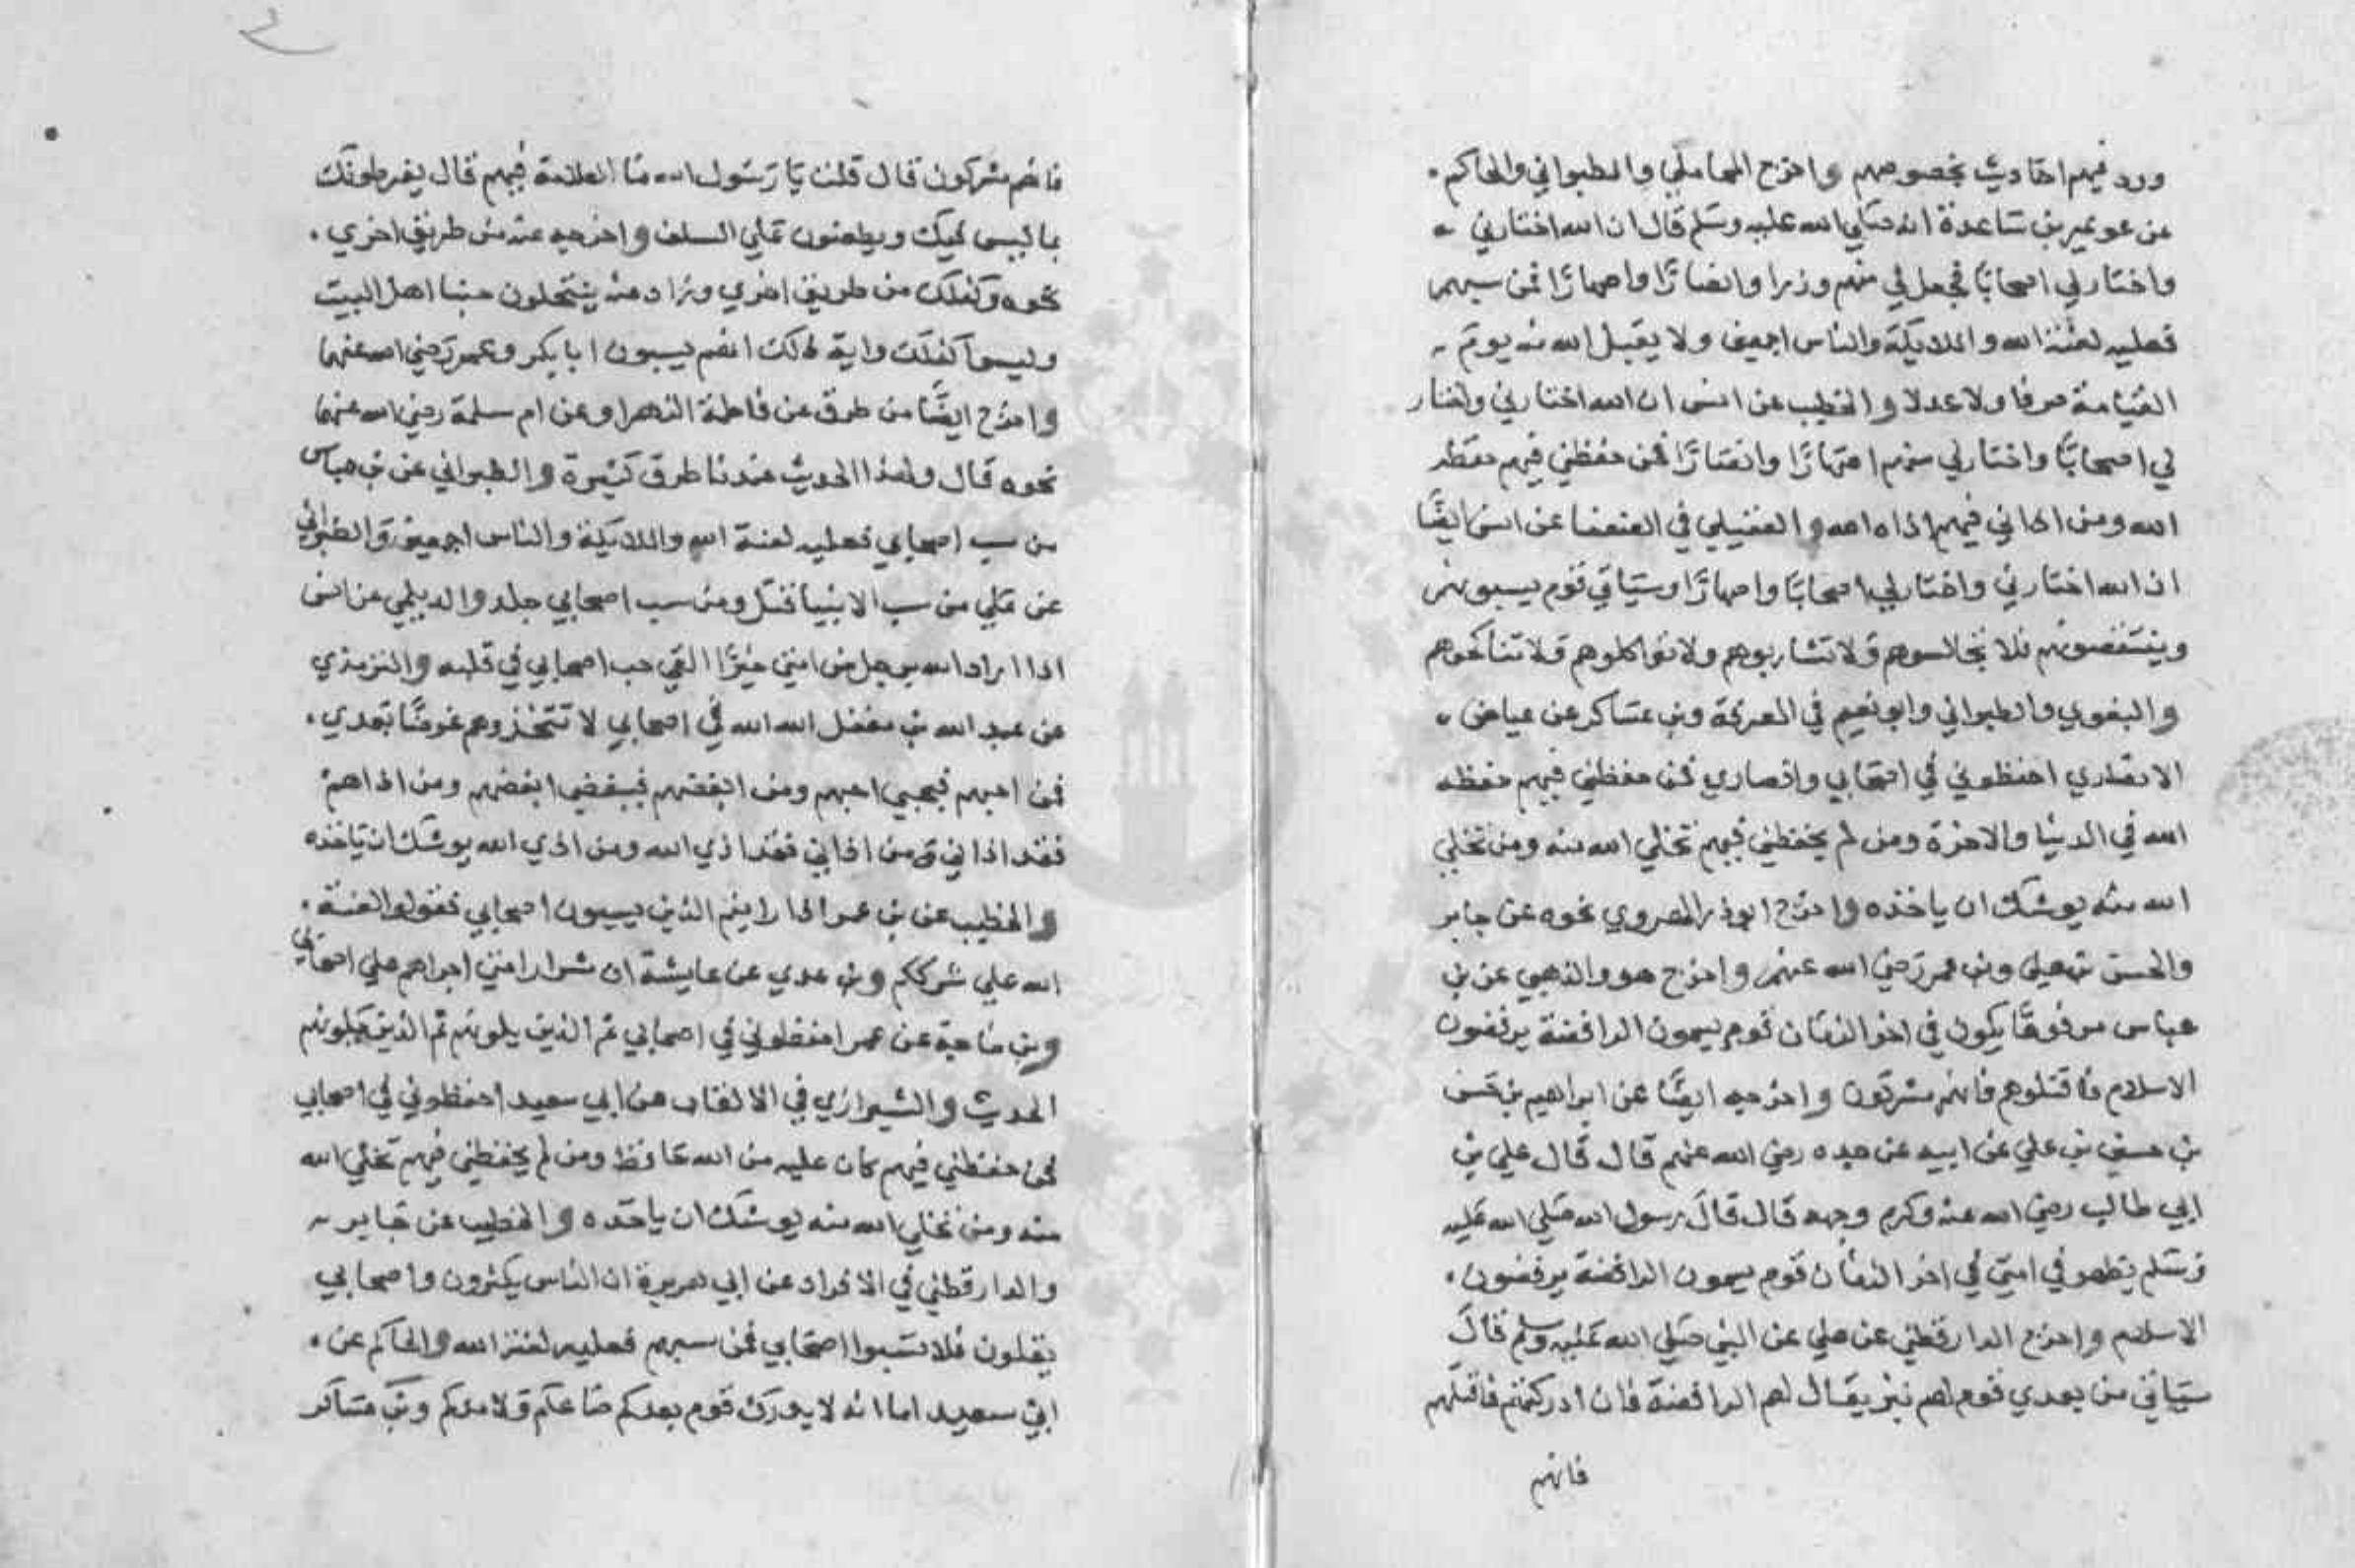 ورد فيهم احاديث بخصوصهم واخرج المحاملي والطبراني والحاكم
عن عويمر بن ساعدة انه صلي الله عليه وسلم قال ان الله اختارني
واختار لي اصحابا فجعل لي منهم وزرا وانصارا واصهارا فمن سبهم
فعليه لعنة الله والملايكة والناس اجمعين ولا يقبل الله منه يوم
القيامة صرفا ولا عدلا والخطيب عن انس ان الله اختارني واختار
لي اصحابا واختار لي منهم اصهارا وانصارا فمن حفظني فيهم حفظه
الله ومن اذاني فيهم اذاه الله والعقيلي في الضعفا عن انس ايضا
ان الله اختارني واختار لي اصحابا واصهارا وسياتي قوم يسبونهم
وينتقصونهم فلا تجالسوهم ولا تشاربوهم ولا تواكلوهم ولا تناكحوهم
والبغوي والطبراني وابو نعيم في المعرفة وبن عساكر عن عياض
الانصاري احفظوني في اصحابي وانصاري فمن حفظني فيهم حفظه
الله في الدنيا والاخرة ومن لم يحفظني فيهم تخلي الله منه ومن تخلي
الله منه يوشك ان ياخذه واخرج ابوذر الهروي نحوه عن جابر
والحسن بن علي وبن عمر رضي الله عنهم واخرج هو والذهبي عن بن
عباس مرفوعا يكون في اخر الزمان قوم يسمون الرافضة يرفضون
الاسلام فاقتلوهم فانهم مشركون واخرجه ايضا عن ابراهيم بن حسن
بن حسين بن علي عن ابيه عن جده رضي الله عنهم قال قال علي بن
ابي طالب رضي الله عنه وكرم وجهه قال قال رسول الله صلي الله عليه
وسلم يظهر في امتي في اخر الزمان قوم يسمون الرافضة يرفضون
الاسلام واخرج الدارقطني عن علي عن النبي صلي الله عليه وسلم قال
سياتي من بعدي قوم لهم نبز يقال لهم الرافضة فان ادركتهم فاقتلهم
فانهم
فانهم مشركون قال قلت يا رسول الله ما العلامة فيهم قال يفرطونك
بما ليس فيك ويطعنون علي السلف واخرجه عنه من طريق اخري
نحوه وكذلك من طريق اخري وزاد عنه ينتحلون حبنا اهل البيت
وليسوا كذلك واية ذلك انهم يسبون ابا بكر وعمر رضي الله عنهما
واخرج ايضا من طرق عن فاطمة الزهرا وعن ام سلمة رضي الله عنهما
نحوه قال ولهذا الحديث عندنا طرق كثيرة والطبراني عن بن عباس
من سب اصحابي فعليه لعنة الله والملايكة والناس اجمعين والطبراني
عن علي من سب الانبيا قتل ومن سب اصحابي جلد والديلمي عن انس
اذا اراد الله برجل من امتي خيرا القي حب اصحابي في قلبه والترمذي
عن عبد الله بن مغفل الله الله في اصحابي لا تتخذوهم غرضا بعدي
فمن احبهم فبحبي احبهم ومن ابغضهم فببغضي ابغضهم ومن اذاهم
فقد اذاني ومن اذاني فقد اذي الله ومن اذي الله يوشك ان ياخذه
والخطيب عن بن عمر اذا رايتم الذين يسبون اصحابي فقولوا لعنة
الله علي شركم وبن عدي عن عايشة ان شرار امتي اجراهم علي اصحابي
وبن ماجة عن عمر احفظوني في اصحابي ثم الذين يلونهم ثم الذين يلونهم
الحديث والشيرازي في الالقاب عن ابي سعيد احفظوني في اصحابي
فمن حفظني فيهم كان عليه من الله حافظ ومن لم يحفظني فيهم تخلي الله
منه ومن تخلي الله منه يوشك ان ياخذه والخطيب عن جابر
والدارقطني في الافراد عن ابي هريرة ان الناس يكثرون واصحابي
يقلون فلا تسبوا اصحابي فمن سبهم فعليه لعنة الله والحاكم عن
ابي سعيد اما انه لا يدرك قوم بعدكم صاعكم ولا مدكم وبن عساكر